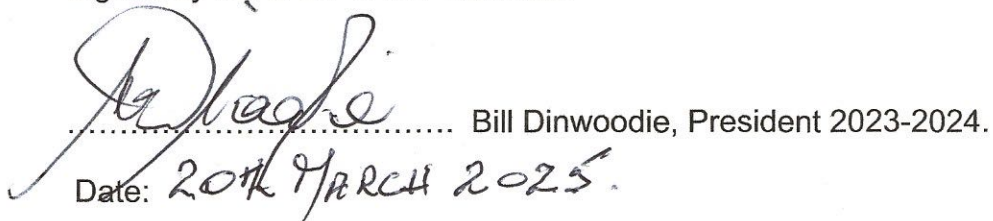 Bill Dinwoodie, President 2023-2024.
Date: 20th MARCH 2025.